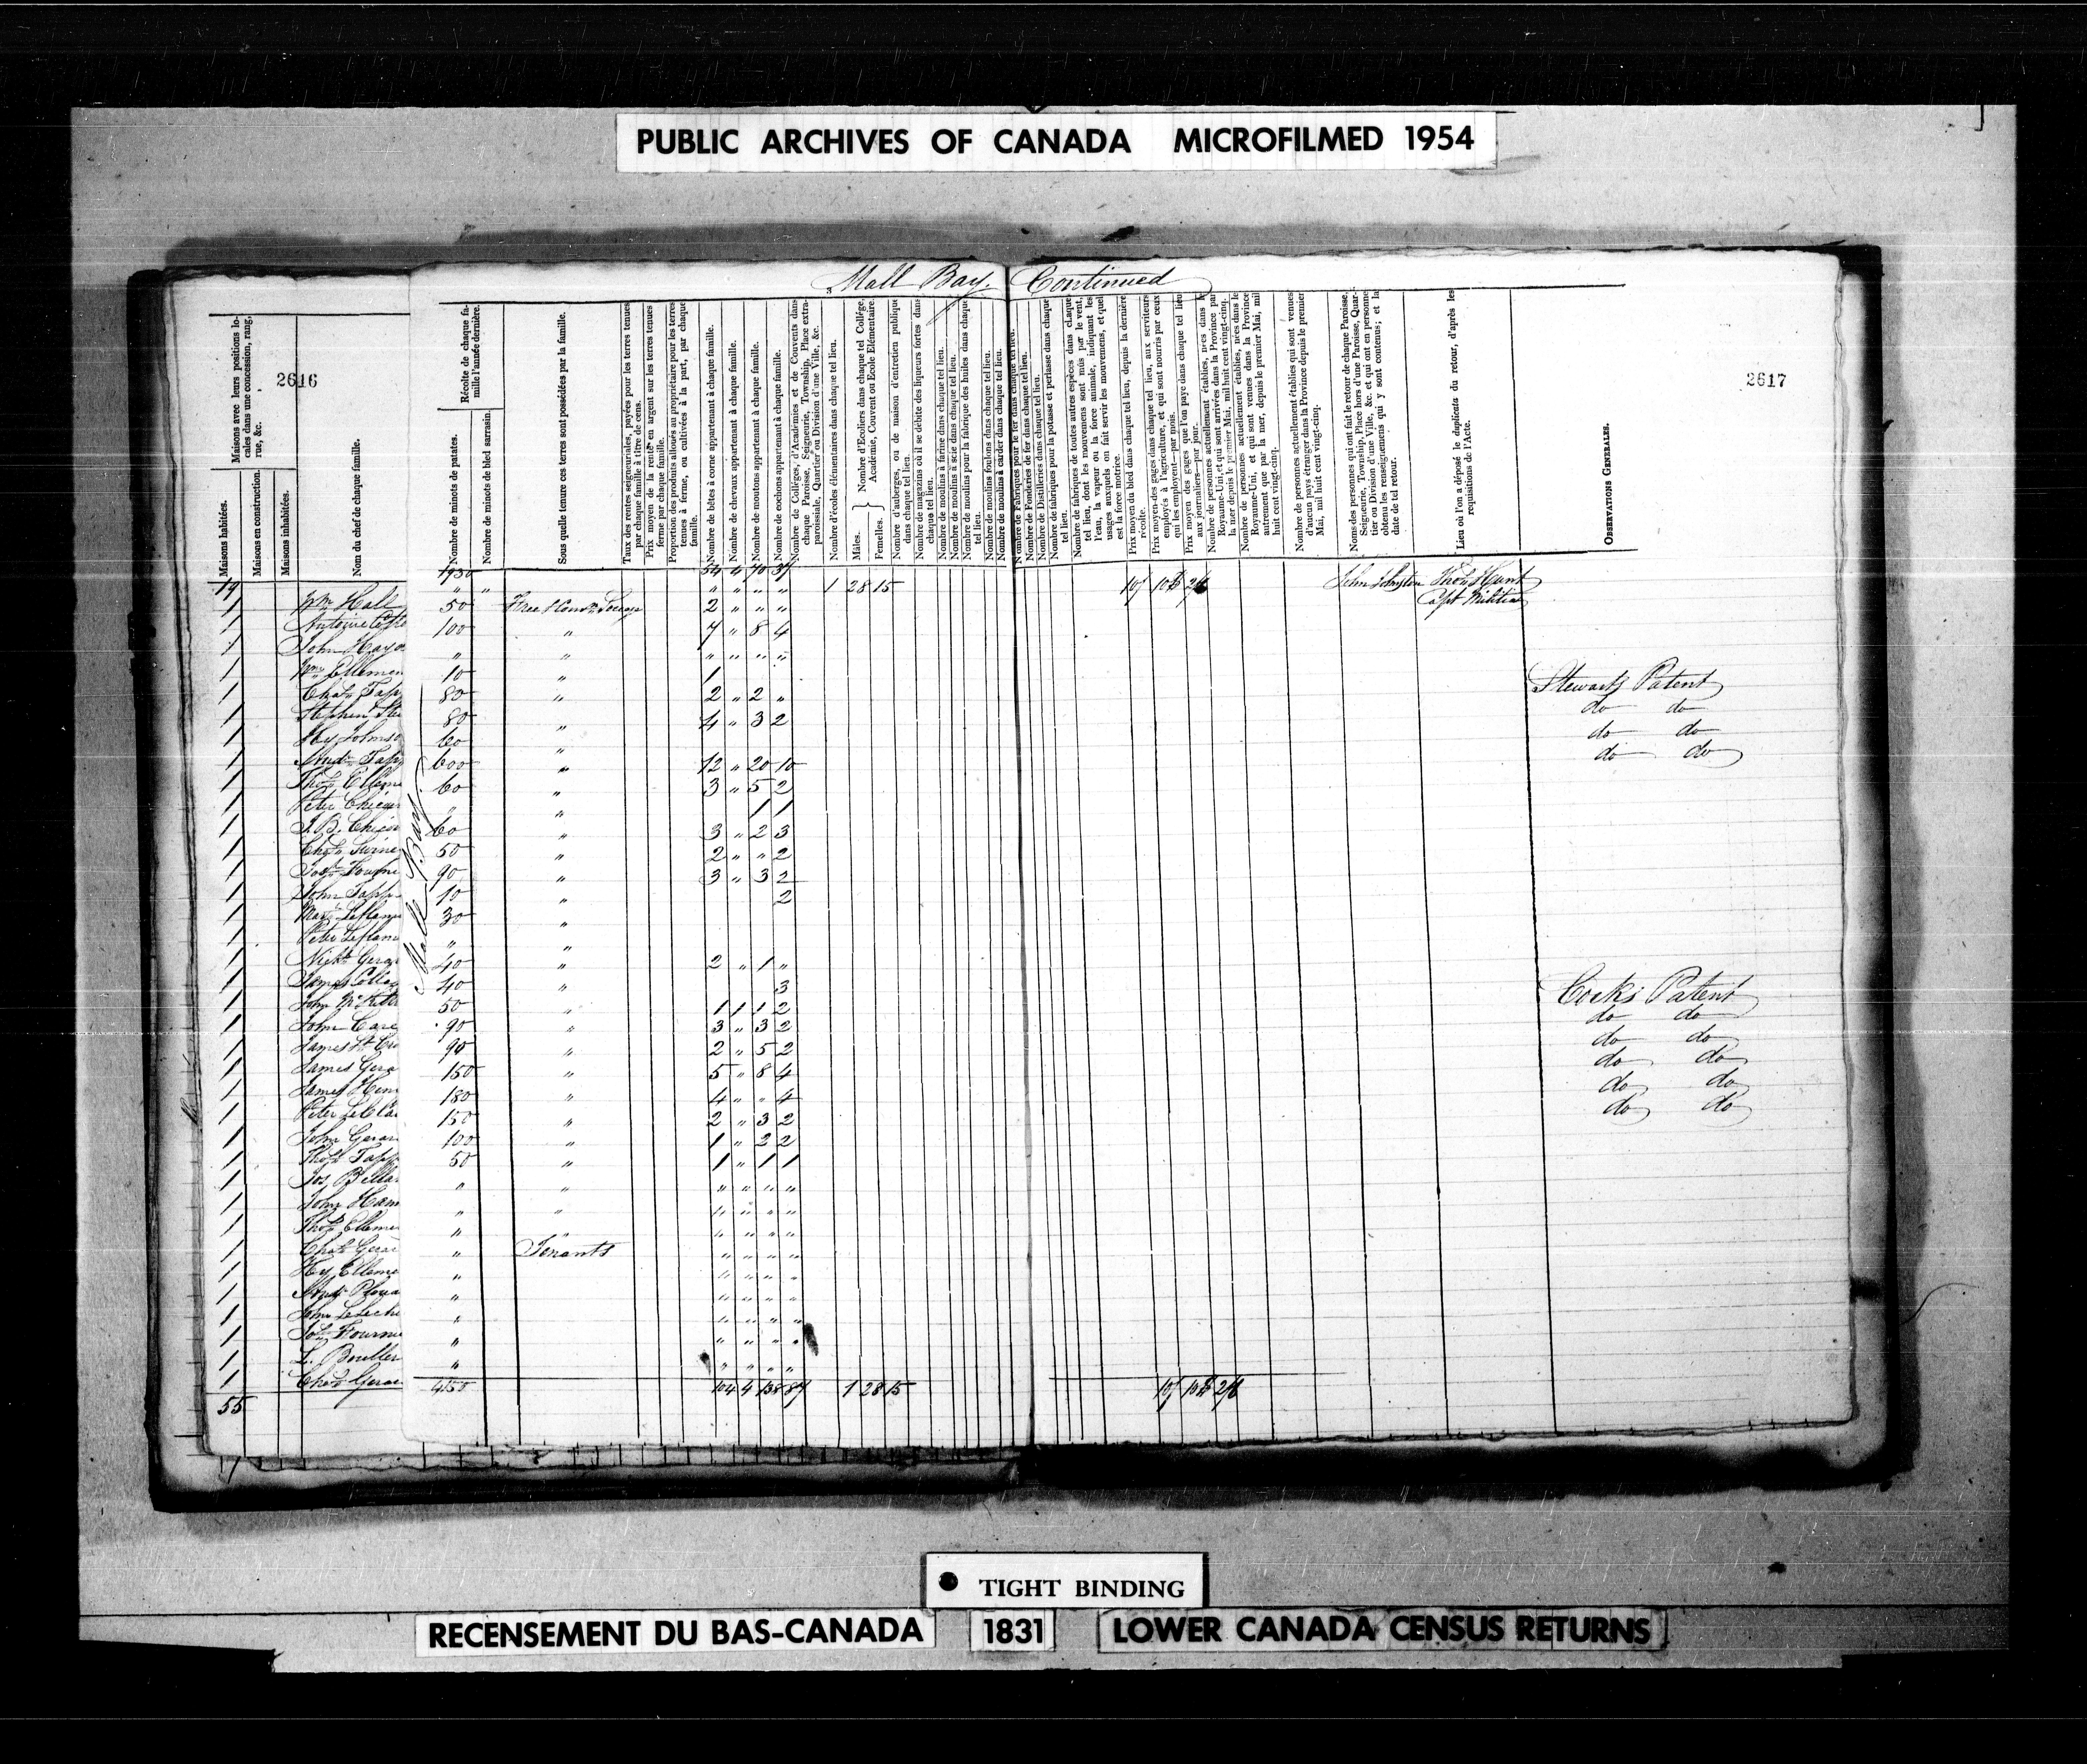 PUBLIC ARCHIVES OF CANADA MICROFILMED 1954
Mall Bay. Continued
2616
2617
Maisons avec leurs positions locales dans une concession, rang, rue, &c.
Maisons habitées.
Maisons en construction.
Maisons inhabitées.
Nom du chef de chaque famille.
Récolte de chaque famille l'année dernière.
Nombre de minots de patates.
Nombre de minots de bled sarrasin.
Sous quelle tenure ces terres sont possédées par la famille.
Taux des rentes seigneuriales, payées pour les terres tenues par chaque famille à titre de cens.
Prix moyen de la rente en argent sur les terres tenues à ferme par chaque famille.
Proportion des produits alloués au propriétaire pour les terres tenues à ferme, ou cultivées à la part, par chaque famille.
Nombre de bêtes à corne appartenant à chaque famille.
Nombre de chevaux appartenant à chaque famille.
Nombre de moutons appartenant à chaque famille.
Nombre de cochons appartenant à chaque famille.
Nombre de Colléges, d'Académies et de Couvents dans chaque Paroisse, Seigneurie, Township, Place extra-paroissiale, Quartier ou Division d'une Ville, &c.
Nombre d'écoles élémentaires dans chaque tel lieu.
Mâles. Femelles. } Nombre d'Ecoliers dans chaque tel Collége, Académie, Couvent ou Ecole Elémentaire.
Nombre d'auberges, ou de maison d'entretien publique dans chaque tel lieu.
Nombre de magazins où il se débite des liqueurs fortes dans chaque tel lieu.
Nombre de moulins à farine dans chaque tel lieu.
Nombre de moulins à scie dans chaque tel lieu.
Nombre de moulins pour la fabrique des huiles dans chaque tel lieu.
Nombre de moulins foulons dans chaque tel lieu.
Nombre de moulins à carder dans chaque tel lieu.
Nombre de Fabriques pour le fer dans chaque tel lieu.
Nombre de Fonderies de fer dans chaque tel lieu.
Nombre de Distilleries dans chaque tel lieu.
Nombre de fabriques pour la potasse et perlasse dans chaque tel lieu.
Nombre de fabriques de toutes autres espèces dans chaque tel lieu, dont les mouvemens sont mus par le vent, l'eau, la vapeur ou la force animale, indiquant les usages auxquels on fait servir les mouvemens, et quel est la force motrice.
Prix moyen du bled dans chaque tel lieu, depuis la dernière récolte.
Prix moyen des gages dans chaque tel lieu, aux serviteurs employés à l'agriculture, et qui sont nourris par ceux qui les employent—par mois.
Prix moyen des gages que l'on paye dans chaque tel lieu aux journaliers—par jour.
Nombre de personnes actuellement établies, nées dans le Royaume-Uni, et qui sont arrivées dans la Province par la mer depuis le premier Mai, mil huit cent vingt-cinq.
Nombre de personnes actuellement établies, nées dans le Royaume-Uni, et qui sont venues dans la Province autrement que par la mer, depuis le premier Mai, mil huit cent vingt-cinq.
Nombre de personnes actuellement établies qui sont venues d'aucun pays étranger dans la Province depuis le premier Mai, mil huit cent vingt-cinq.
Noms des personnes qui ont fait le retour de chaque Paroisse, Seigneurie, Township, Place hors d'une Paroisse, Quartier ou Division d'une Ville, &c. et qui ont en personne obtenu les renseignemens qui y sont contenus; et la date de tel retour.
Lieu où l'on a déposé le duplicata du retour, d'après les requisitions de l'Acte.
OBSERVATIONS GENERALES.
19 1930 54 4 70 37 1 28 15 10/ 2/6 John Johnston Thos Hunt
Capt Militia
1 Wm Hall 50 Free & Comn Socage 2 " " "
1 Antoine 100 " 7 " 8 4
1 John " " " " " "
1 Wm Ellemen 10 " 1 Stewarts Patent
1 Chas Tapp 80 " 2 " 2 " do do
1 Stephen 80 " 4 " 3 2 do do
1 Hy Johnso 60 " do do
1 Tapp 600 " 12 " 20 10
1 Thos Elleme 60 " 3 " 5 2
1 Peter " " 1 1
1 J.B. 60 " 3 " 2 3
1 Chas 50 " 2 " " 2
1 90 " 3 " 3 2
1 John Tapp 10 " 2
1 30 "
1 Peter " "
1 Gera 40 " 2 " 1 "
1 James 40 " 3 Cocks Patent
1 John 50 " 1 1 1 2 do do
1 John Care 90 " 3 " 3 2 do do
1 James 90 " 2 " 5 2 do do
1 James Gera 150 " 5 " 8 4 do do
1 James 180 " 4 " " 4 do do
1 Peter 150 " 2 " 3 2
1 John Gerar 100 " 1 " 2 2
1 Thos Tapp 50 " 1 " 1 1
1 Jos " " " " " "
1 John Ham " " " " " "
1 Thos Elleme " " " " " "
1 Chas Gerar " Tenants " " " "
1 Hy Elleme " " " " "
1 " " " " "
1 John " " " " "
1 Fourni " " " " "
1 L. " " " " "
1 Chas Gerar
55 4155 104 4 138 87 1 28 15 10/ 2/6
Malle Bay
TIGHT BINDING
RECENSEMENT DU BAS-CANADA 1831 LOWER CANADA CENSUS RETURNS